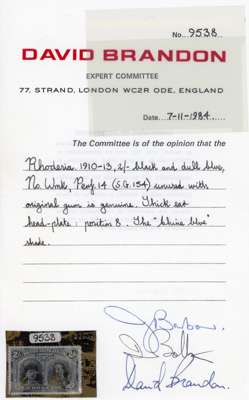 No. 9538
DAVID BRANDON
EXPERT COMMITTEE
77, STRAND, LONDON WC2R ODE, ENGLAND
Date 7-11-1984
The Committee is of the opinion that the
Rhodesia 1910-13, 2/- black and dull blue,
No Wmk, Perf. 14 (S.G. 154) unused with
original gum is genuine. Thick ear
head-plate: position 8. The "
blue"
shade.
9538
David Brandon.